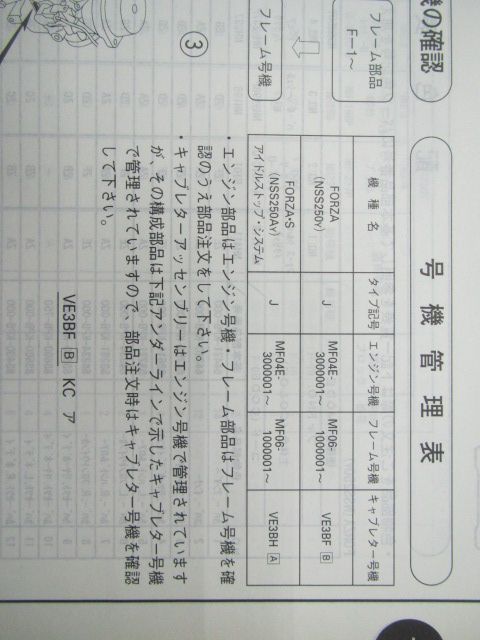 機の確認
フレーム部品
F－1～
フレーム号機
③
号機管理表
機種名 タイプ記号 エンジン号機 フレーム号機 キャブレター号機
FORZA (NSS250Y) J MF04E-3000001～ MF06-1000001～ VE3BF B
FORZA・S (NSS250AY) アイドルストップ・システム J MF04E-3000001～ MF06-1000001～ VE3BH A
・エンジン部品はエンジン号機・フレーム部品はフレーム号機を確
認のうえ部品注文をして下さい。
・キャブレターアッセンブリーはエンジン号機で管理されています
が、その構成部品は下記アンダーラインで示したキャブレター号機
で管理されていますので、部品注文時はキャブレター号機を確認
して下さい。
VE3BF B KC ア